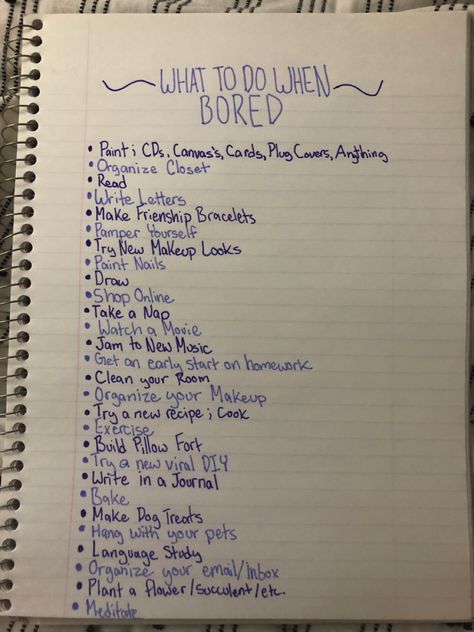 WHAT TO DO WHEN
BORED
• Paint; CDs, Canvas's, Cards, Plug Covers, Anything
• Organize Closet
• Read
• Write Letters
• Make Frienship Bracelets
• Pamper Yourself
• Try New Makeup Looks
• Paint Nails
• Draw
• Shop Online
• Take a Nap
• Watch a Movie
• Jam to New Music
• Get an early start on homework
• Clean your Room
• Organize your Makeup
• Try a new recipe; Cook
• Exercise
• Build Pillow Fort
• Try a new viral DIY
• Write in a Journal
• Bake
• Make Dog Treats
• Hang with your pets
• Language Study
• Organize your email/inbox
• Plant a flower/succulent/etc.
• Meditate